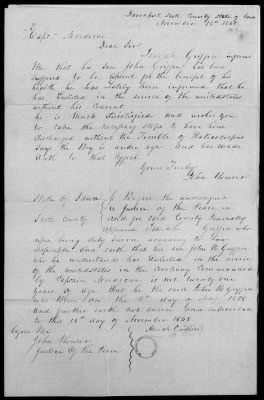 Davenport Scott County State of Iowa
November 18th 1848
To
Capt Mordecai
Dear Sir
Isaiah Griffin informs
Me that his son John Griffin has been
suffered to be absent for the benefit of his
health he was lately been informed that he
has Enlisted in the service of the united states
without his Consent
he is Much dissatisfied and wishes you
to take the necessary steps to have him
discharged without the trouble of
says the Boy is under age and has made
Oath to that Effect
Yours Truly
John
State of Iowa Before the undersigned
a Justice of the Peace in
Scott County and for said County Personally
appeared Isaiah Griffin who
upon being duly sworn according to Law
deposeth and saith that his son John H Griffin
who he understands has Enlisted in the service
of the United States in the Company Commanded
by Captain is not twenty one
years of age that he the said John H Griffin
was Born on the day of May
and further saith not sworn and subscribed
to this 18th day of November 1848
before Me Isaiah Griffin
John
Justice Of the Peace